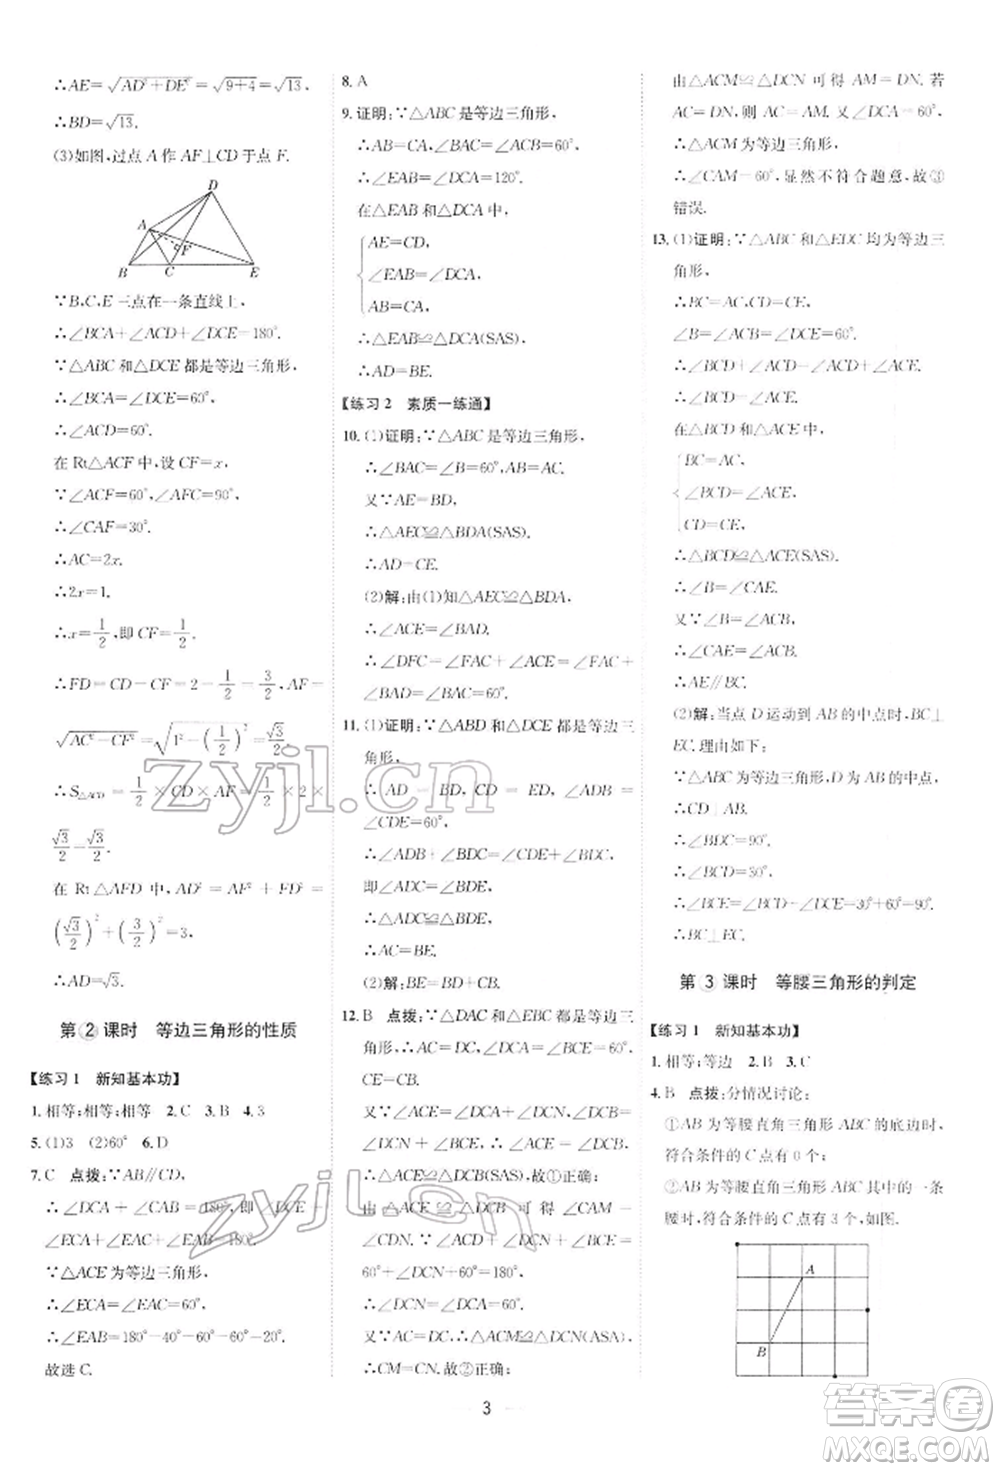 ∴AE=√(AD²+DE²)=√(9+4)=√13.
∴BD=√13.
(3)如图,过点 A 作 AF⊥CD 于点 F.
D
A
F
B
C
E
∵B,C,E 三点在一条直线上,
∴∠BCA+∠ACD+∠DCE=180°.
∵△ABC 和△DCE 都是等边三角形,
∴∠BCA=∠DCE=60°,
∴∠ACD=60°.
在 Rt△ACF 中,设 CF=x,
∵∠ACF=60°,∠AFC=90°,
∴∠CAF=30°.
∴AC=2x.
∴2x=1.
∴x=1/2,即 CF=1/2.
∴FD=CD-CF=2-1/2=3/2,AF=
√(AC²-CF²)=√(1²-(1/2)²)=√3/2.
∴S△ACD=1/2×CD×AF=1/2×2×
√3/2=√3/2.
在 Rt△AFD 中,AD²=AF²+FD²=
(√3/2)²+(3/2)²=3,
∴AD=√3.
第②课时 等边三角形的性质
【练习1 新知基本功】
1.相等;相等;相等 2.C 3.B 4.3
5.(1)3 (2)60° 6.D
7.C 点拨:∵AB∥CD,
∴∠DCA+∠CAB=180°,即∠DCE+
∠ECA+∠EAC+∠EAB=180°.
∵△ACE 为等边三角形,
∴∠ECA=∠EAC=60°,
∴∠EAB=180°-40°-60°-60°=20°.
故选C.
8.A
9.证明:∵△ABC 是等边三角形,
∴AB=CA,∠BAC=∠ACB=60°,
∴∠EAB=∠DCA=120°.
在△EAB 和△DCA 中,
AE=CD,
∠EAB=∠DCA,
AB=CA,
∴△EAB≌△DCA(SAS)
∴AD=BE.
【练习2 素质一练通】
10.(1)证明:∵△ABC 是等边三角形,
∴∠BAC=∠B=60°,AB=AC.
又∵AE=BD,
∴△AEC≌△BDA(SAS)
∴AD=CE.
(2)解:由(1)知△AEC≌△BDA,
∴∠ACE=∠BAD.
∴∠DFC=∠FAC+∠ACE=∠FAC+
∠BAD=∠BAC=60°.
11.(1)证明:∵△ABD 和△DCE 都是等边三
角形,
∴AD=BD,CD=ED,∠ADB=
∠CDE=60°.
∴∠ADB+∠BDC=∠CDE+∠BDC,
即∠ADC=∠BDE.
∴△ADC≌△BDE.
∴AC=BE.
(2)解:BE=BD+CB.
12.B 点拨:∵△DAC 和△EBC 都是等边三
角形,∴AC=CD,CE=BC,∠ACD=
∠ECB=60°.
又∵∠ACE=∠ACD+∠DCE,
∠DCB=∠ECB+∠DCE,
∴∠ACE=∠DCB.
∴△ACE≌△DCB(SAS),故①正确;
由△ACE≌△DCB 可得∠CAM=
∠CDN. ∵∠ACD=∠ECB=60°,
60°+∠DCN+60°=180°,
∴∠DCN=∠ACM=60°.
又∵AC=DC,
∴△ACM≌△DCN(ASA)
∴CM=CN. 故②正确;
由△ACM≌△DCN 可得 AM=DN. 若
AC=DN,则 AC=AM. ∵∠DCA=60°,
∴△ACM 为等边三角形.
∴∠CAM=60°,显然不符合题意,故③
错误.
13.(1)证明:∵△ABC 和△EDC 均为等边三
角形,
∴BC=AC,CD=CE,
∠B=∠ACB=∠DCE=60°.
∴∠BCD+∠ACD=∠ACD+∠ACE.
∴∠BCD=∠ACE.
在△BCD 和△ACE 中,
BC=AC,
∠BCD=∠ACE,
CD=CE,
∴△BCD≌△ACE(SAS).
∴∠B=∠CAE.
又∵∠B=∠ACB,
∴∠CAE=∠ACB.
∴AE∥BC.
(2)解:当点 D 运动到 AB 的中点时,BC⊥
EC.理由如下:
∵△ABC 为等边三角形,D 为AB 的中点,
∴CD⊥AB.
∴∠BDC=90°.
∵∠B=60°,∴∠BCD=30°.
∴∠BCE=∠BCD+∠DCE=30°+60°=90°.
∴BC⊥EC.
第③课时 等腰三角形的判定
【练习1 新知基本功】
1.相等;等边 2.B 3.C
4.B 点拨:分情况讨论:
①AB 为等腰直角三角形 ABC 的底边时,
符合条件的 C 点有0个;
②AB 为等腰直角三角形 ABC 其中的一条
腰时,符合条件的 C 点有3个,如图.
A
B
3
zyjl.cn
zyjl.cn
答案圈
MXQE.COM